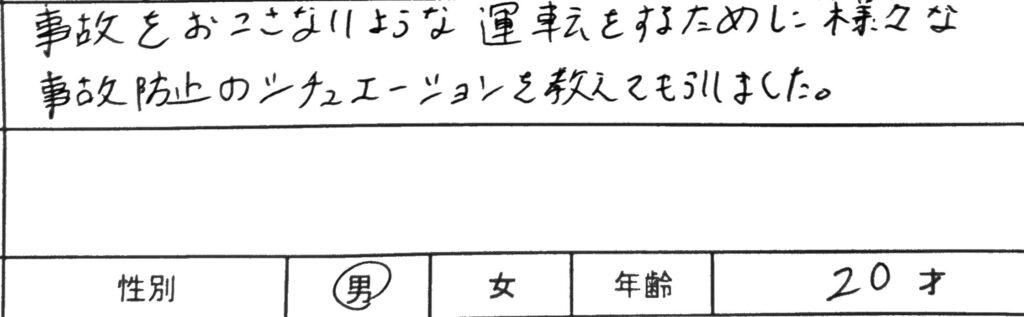 事故をおこさないような運転をするために様々な
事故防止のシチュエーションを教えてもらいました。
性別 男 女 年齢 20才